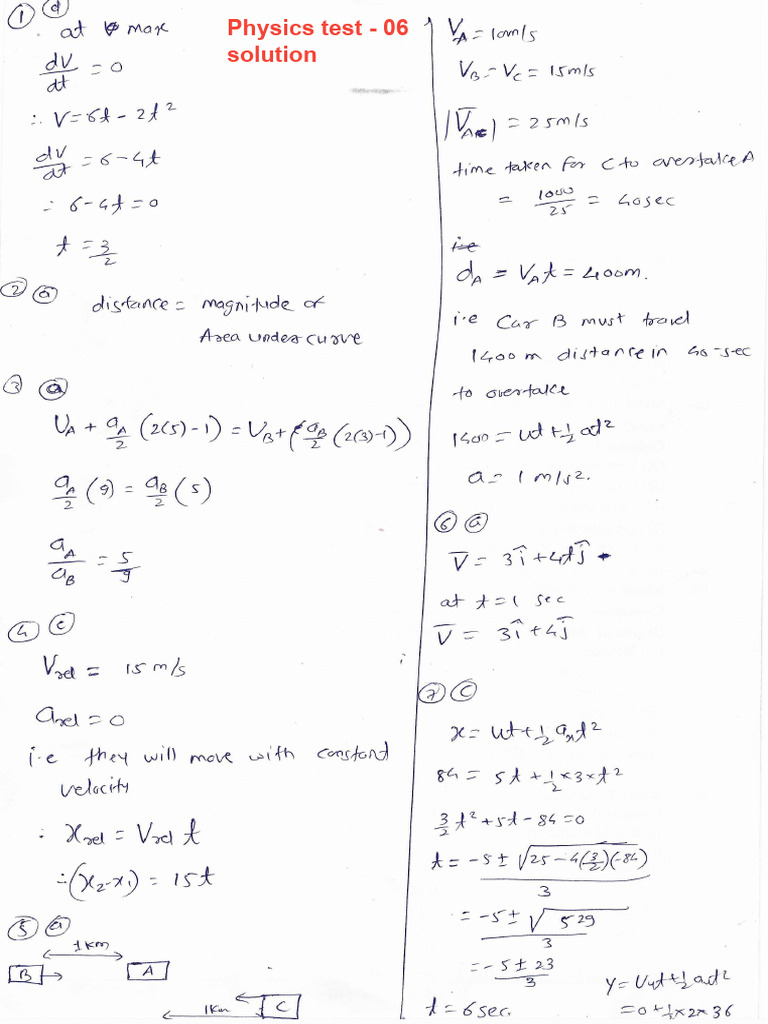 Physics test - 06
solution
① ⓓ
at V max
dV/dt = 0
∴ V = 6t - 2t²
dV/dt = 6 - 4t
∴ 6 - 4t = 0
t = 3/2
② ⓐ
distance = magnitude of
Area under curve
③ ⓐ
U_A + a_A/2 (2(5)-1) = V_B + (a_B/2 (2(3)-1))
a_A/2 (9) = a_B/2 (5)
a_A/a_B = 5/9
④ ⓒ
V_rel = 15 m/s
a_rel = 0
i.e they will move with constant
velocity
∴ x_rel = V_rel t
∴ (x₂-x₁) = 15t
⑤ ⓐ
1km
B A
1km C
V_A = 10m/s
V_B = V_C = 15m/s
|V̄_AC| = 25m/s
time taken for C to overtake A
= 1000/25 = 40sec
i.e
d_A = V_A t = 400m.
i.e Car B must travel
1400 m distance in 40-sec
to overtake
1400 = ut + 1/2 at²
a = 1 m/s².
⑥ ⓐ
V̄ = 3î + 4tĵ
at t = 1 sec
V̄ = 3î + 4ĵ
⑦ ⓒ
x = ut + 1/2 a_x t²
84 = 5t + 1/2 × 3 × t²
3/2 t² + 5t - 84 = 0
t = -5 ± √(25 - 4(3/2)(-84)) / 3
= -5 ± √529 / 3
= -5 ± 23 / 3
t = 6 sec.
y = u_y t + 1/2 at²
= 0 + 1/2 × 2 × 36